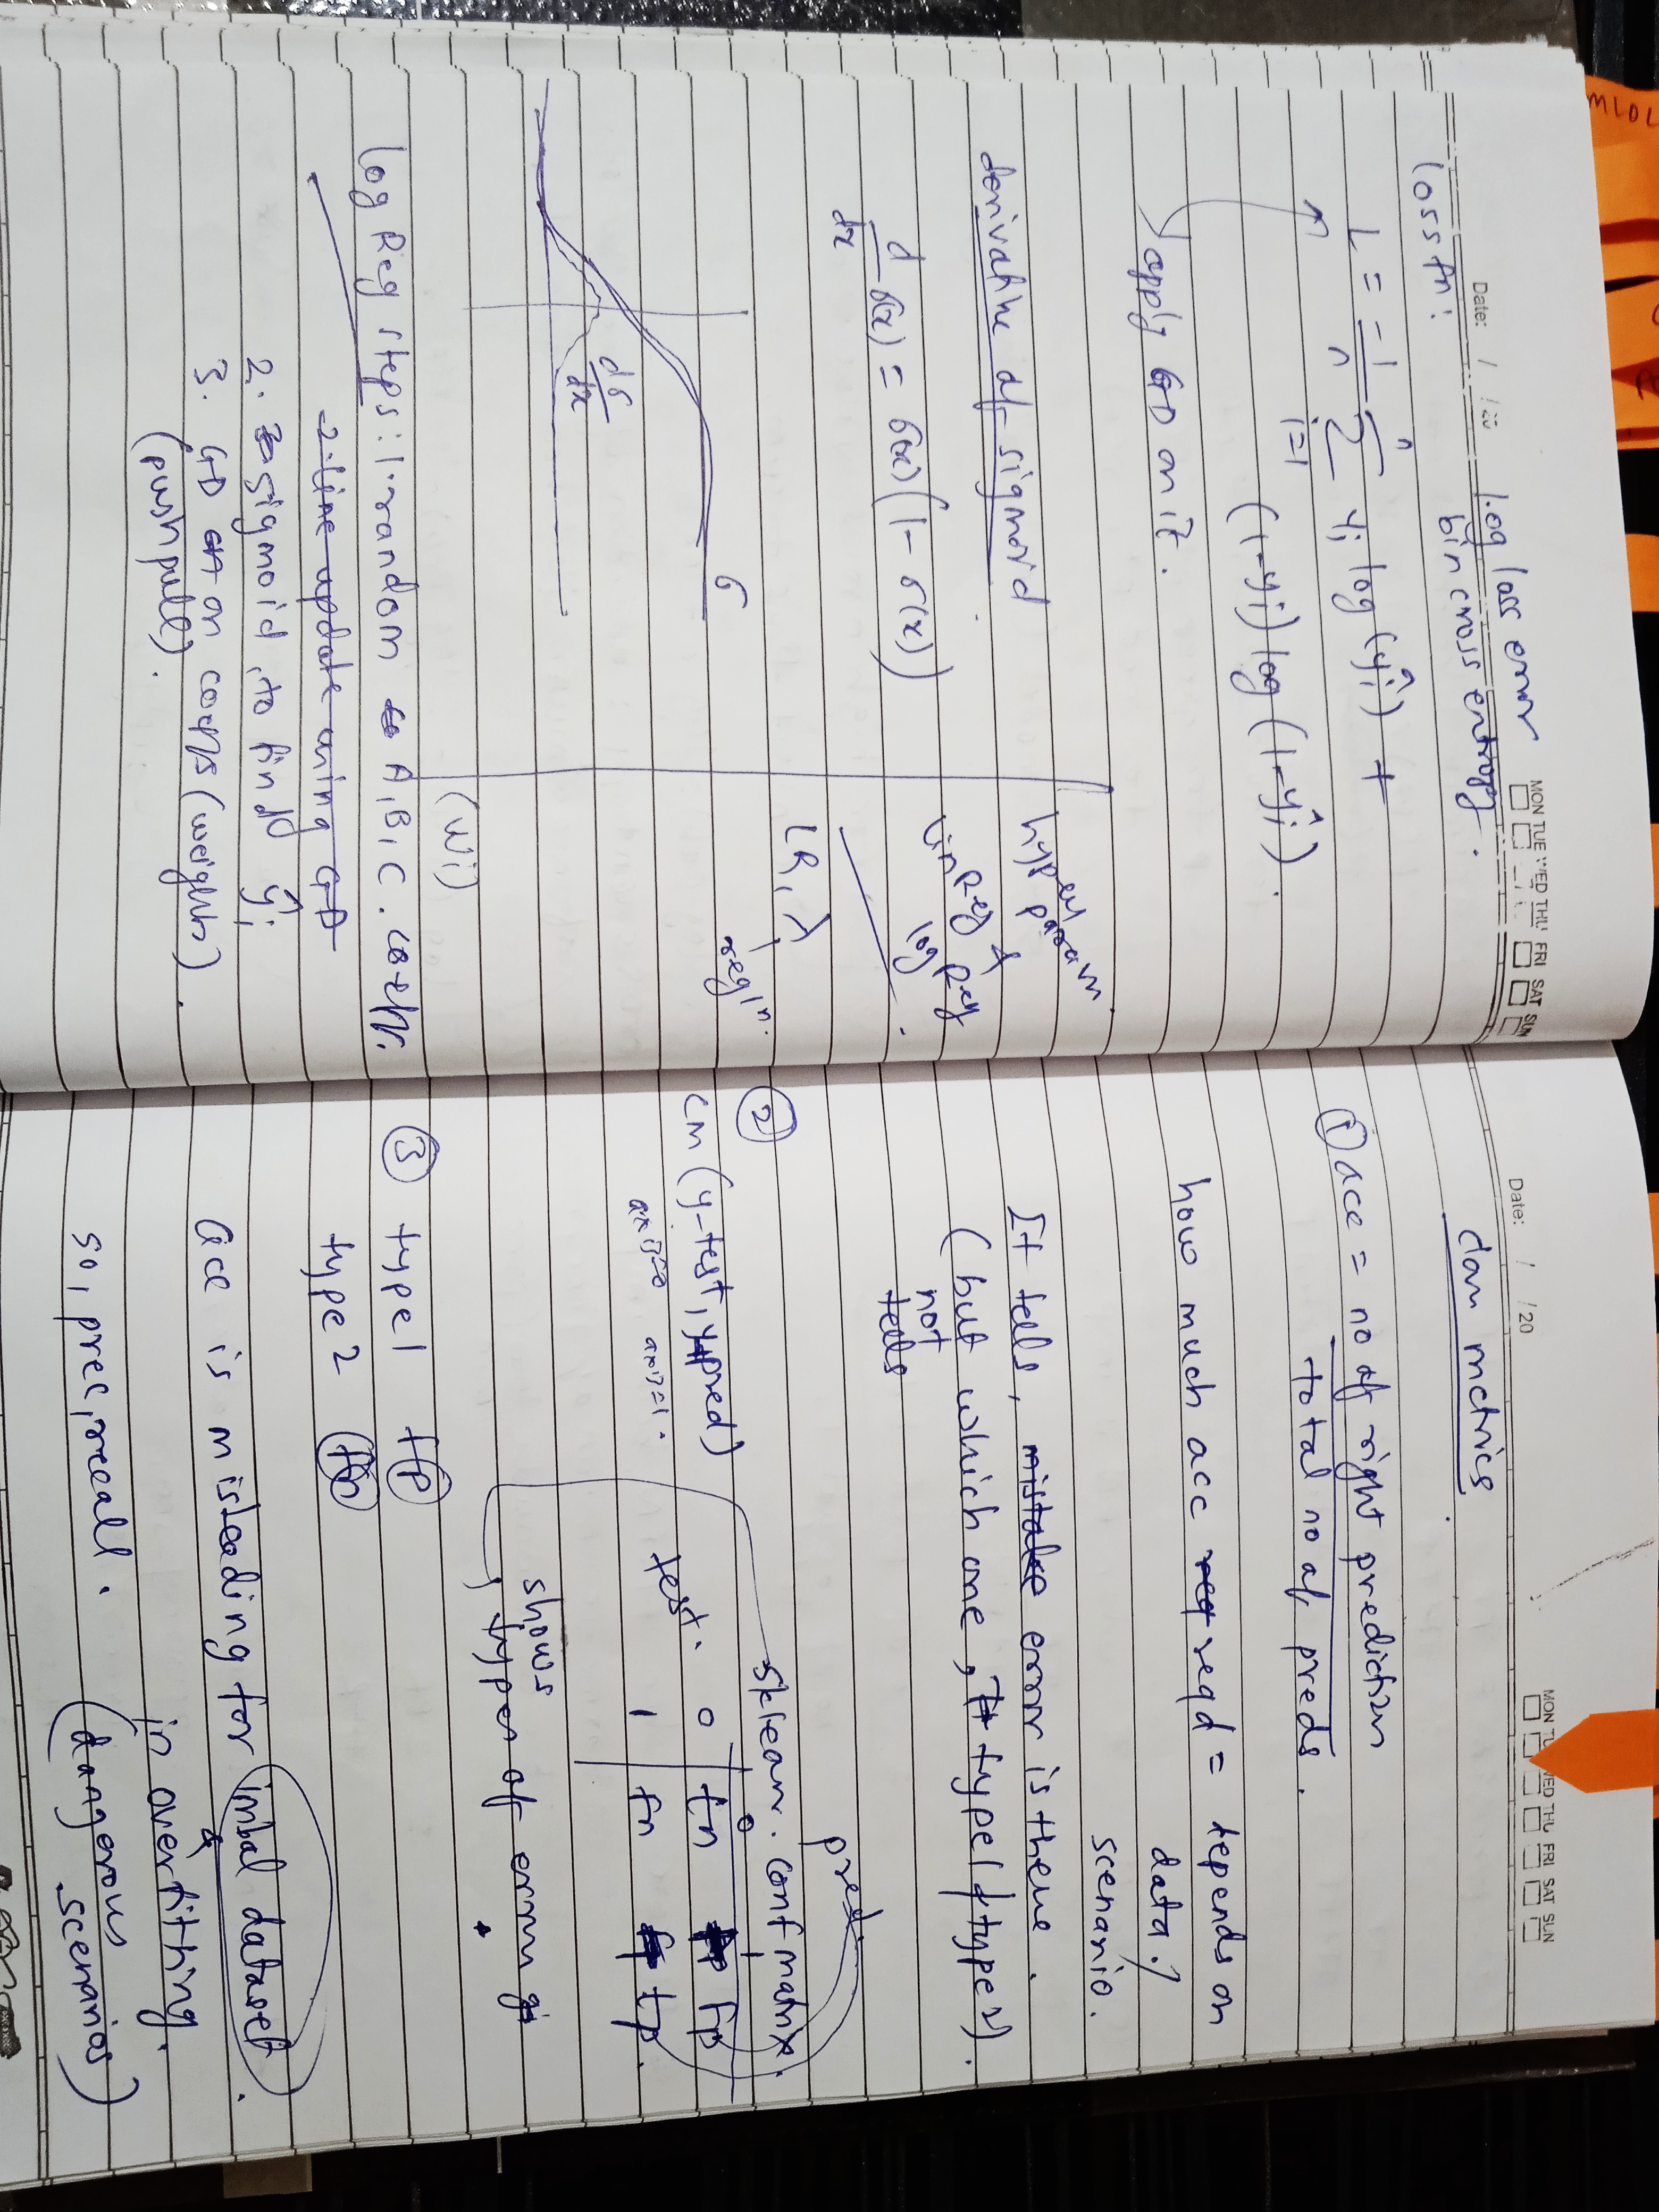 Date: / /20
MON TUE WED THU FRI SAT SUN
loss fn: log loss error
bin cross entropy.
L = -1/n Σ i=1 n yi log (ŷi) +
(1-yi) log (1-ŷi).
apply GD on it.
derivative of sigmoid
d/dx σ(x) = σ(x) (1 - σ(x))
σ
dσ/dx
hyper param
lin Reg &
log Reg
LR, λ
regln.
log Reg steps: 1. random A, B, C. coeffs.
(wi)
2. line update using GD
2. sigmoid, to find ŷi
3. GD on coeffs (weights).
(push pull).
Date: / /20
MON TUE WED THU FRI SAT SUN
clan metrics
① acc = no of right prediction
total no of preds.
how much acc req reqd = depends on
data /
scenario.
It tells, mistake error is there.
(but which one, type1/type2).
not
tells
pred.
② sklearn. conf matrix
CM (y-test, ypred)
axis=0 axis=1.
0 1
test. 0 tn fp
1 fn tp
shows
types of errors
③ type1 fp
type2 fn
acc is misleading for imbal dataset.
in overfitting.
so, prec, recall. (dangerous
scenarios)